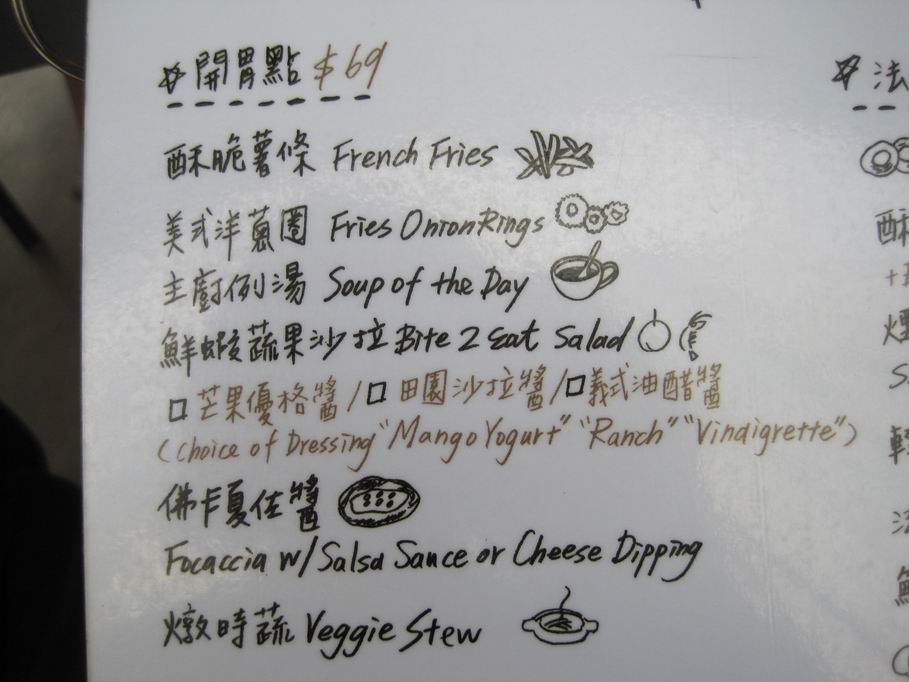 開胃點 $69
酥脆薯條 French Fries
美式洋蔥圈 Fries Onion Rings
主廚例湯 Soup of the Day
鮮蝦蔬果沙拉 Bite 2 Eat Salad
□ 芒果優格醬/□ 田園沙拉醬/□義式油醋醬
(Choice of Dressing "Mango Yogurt" "Ranch" "Vindigrette")
佛卡夏佐醬
Focaccia w/Salsa Sance or Cheese Dipping
燉時蔬 Veggie Stew
法
酥